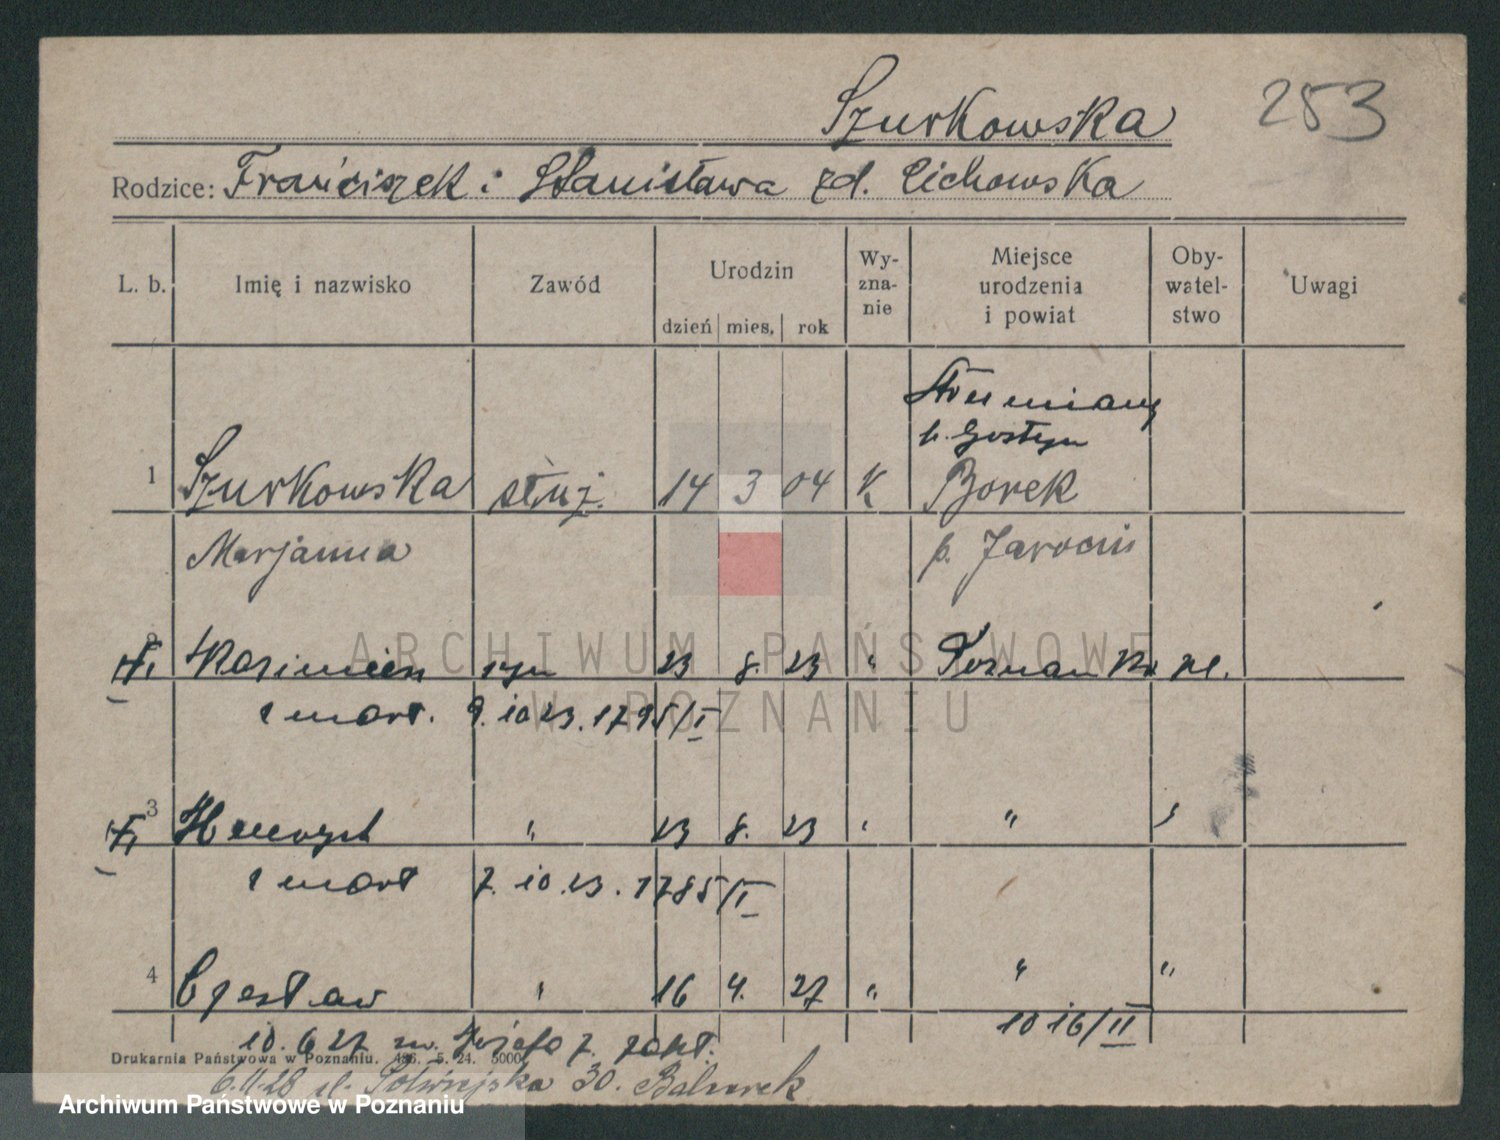 Szurkowska
253
Rodzice: Franciszek i Stanisława zd. Cichowska
L. b. Imię i nazwisko Zawód Urodzin Wy-zna-nie Miejsce urodzenia i powiat Oby-watel-stwo Uwagi
dzień mies. rok
Strumiany
p. Gostyn
1 Szurkowska służ. 14 3 04 K Borek
Marjanna p. Jarocin
2 Kazimierz syn 23 8. 23 " Poznań
zmarł. 9. 10 23. 1795/I
3 Henryk " 23 8. 23 " " "
zmarł 7. 10. 23. 1785/I
4 Czesław " 16 4. 27 " " "
1016/II
10. 6 27 zw. Józefa
Drukarnia Państwowa w Poznaniu. 486. 5. 24. 5000
6.11.28 ul. 30.
ARCHIWUM PAŃSTWOWE
W POZNANIU
Archiwum Państwowe w Poznaniu